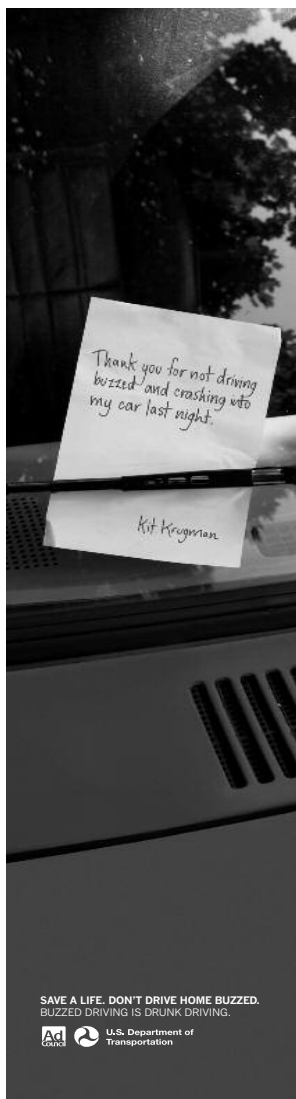 Thank you for not driving
buzzed and crashing into
my car last night.
Kit Krugman
SAVE A LIFE. DON'T DRIVE HOME BUZZED.
BUZZED DRIVING IS DRUNK DRIVING.
Ad
Council
U.S. Department of
Transportation